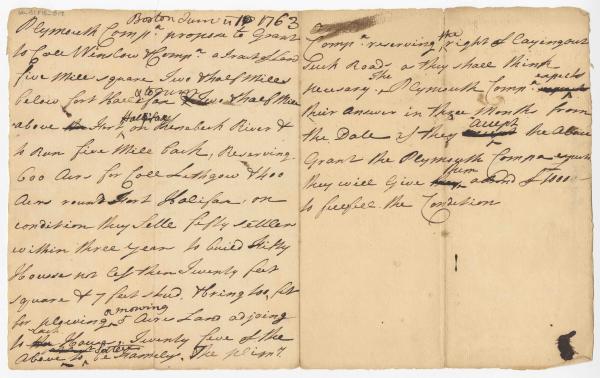 Boston June 1763
Plymouth Compa. propose to Grant
to Coll Winslow & Compa. a tract of Land
five Mill square Two & half Mills
below fort Halifax & to Run Two & half Mill
above Fort Halifax on Kenebeck River &
to Run five Mill back, Reserving
600 Acrs for Coll Lithgow & 400
Acrs round Fort Halifax, on
condition they Settle fifty settlers
within three year to build fifty
Houses not less then Twenty feet
square & 7 feet stud. & bring too, fit
for plowing or mowing 5 Acres Land adjoing
to Each House, Twenty five of the
Above Setlers to be Familys. The plimo.
Compa. reserving the right of laying out
such Roads as they shall think
necesary. The Plymouth Compa. expects
their answer in three Months from
the Date if they accept the Above
Grant the Plymouth Compa expects
they will Give them a Bond of £1000
to fulfill the Condition